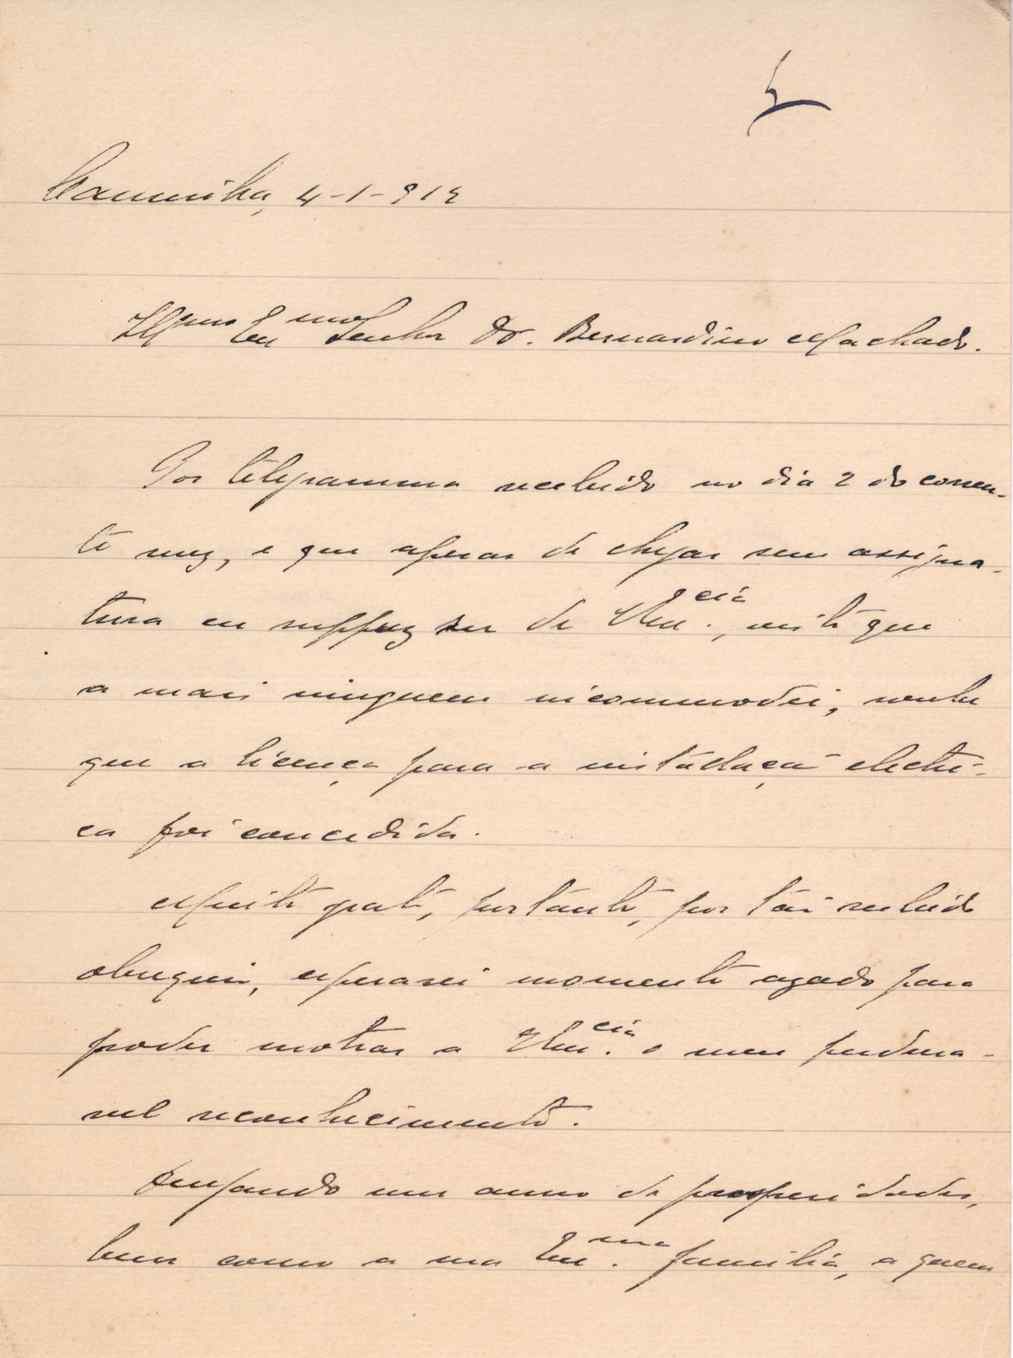 Caminha, 4-1-919
Ill.mo Ex.mo Senhor Dr. Bernardino Machado.
Por telegramma recebido no dia 2 do corren-
te mez, e que apesar de chegar sem assigna-
tura eu suppuz ser de V. Ex.cia, visto que
a mais ninguem incommodei, soube
que a licença para a installação electri-
ca foi concedida.
Muito grato, portanto, por tão subido
obsequio, esperarei momento azado para
poder mostrar a V. Ex.cia o meu perdura-
vel reconhecimento.
Desejando um anno de prosperidades,
bem como a sua Ex.ma familia, a quem